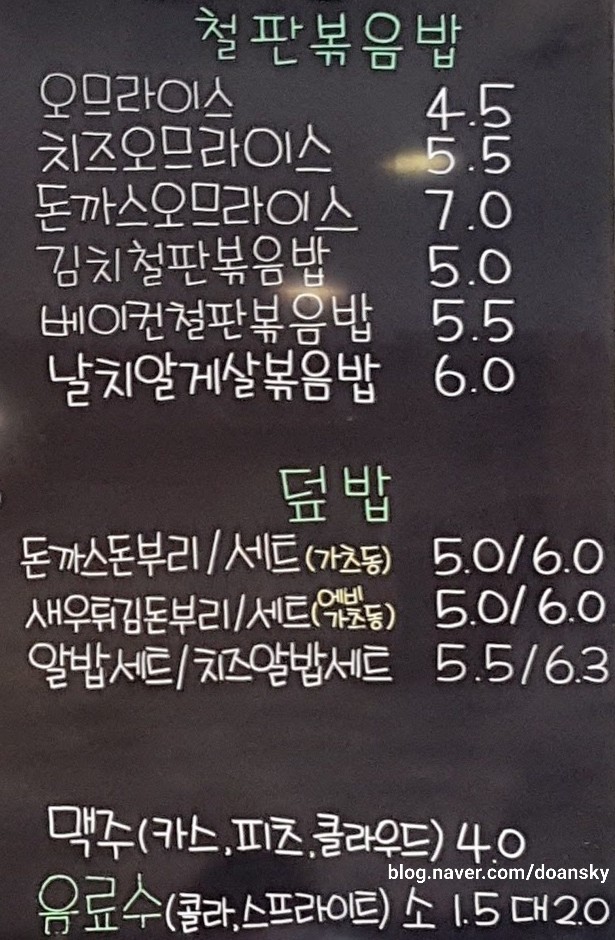 철판볶음밥
오므라이스 4.5
치즈오므라이스 5.5
돈까스오므라이스 7.0
김치철판볶음밥 5.0
베이컨철판볶음밥 5.5
날치알게살볶음밥 6.0
덮밥
돈까스돈부리/세트(가츠동) 5.0/6.0
새우튀김돈부리/세트(에비가츠동) 5.0/6.0
알밥세트/치즈알밥세트 5.5/6.3
맥주(카스,피츠,클라우드) 4.0
blog.naver.com/doansky
음료수(콜라,스프라이트) 소 1.5 대 2.0